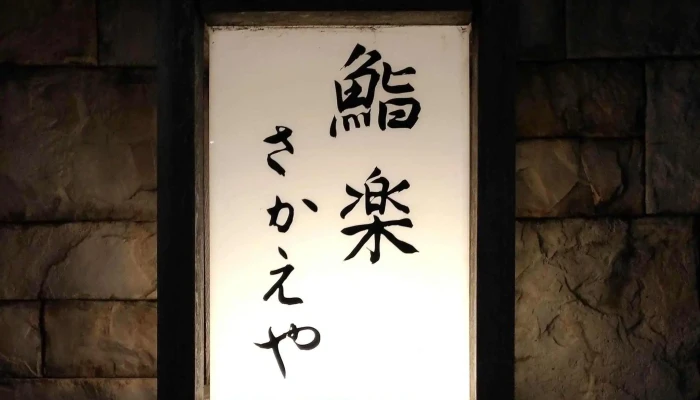 鮨楽
さかえや